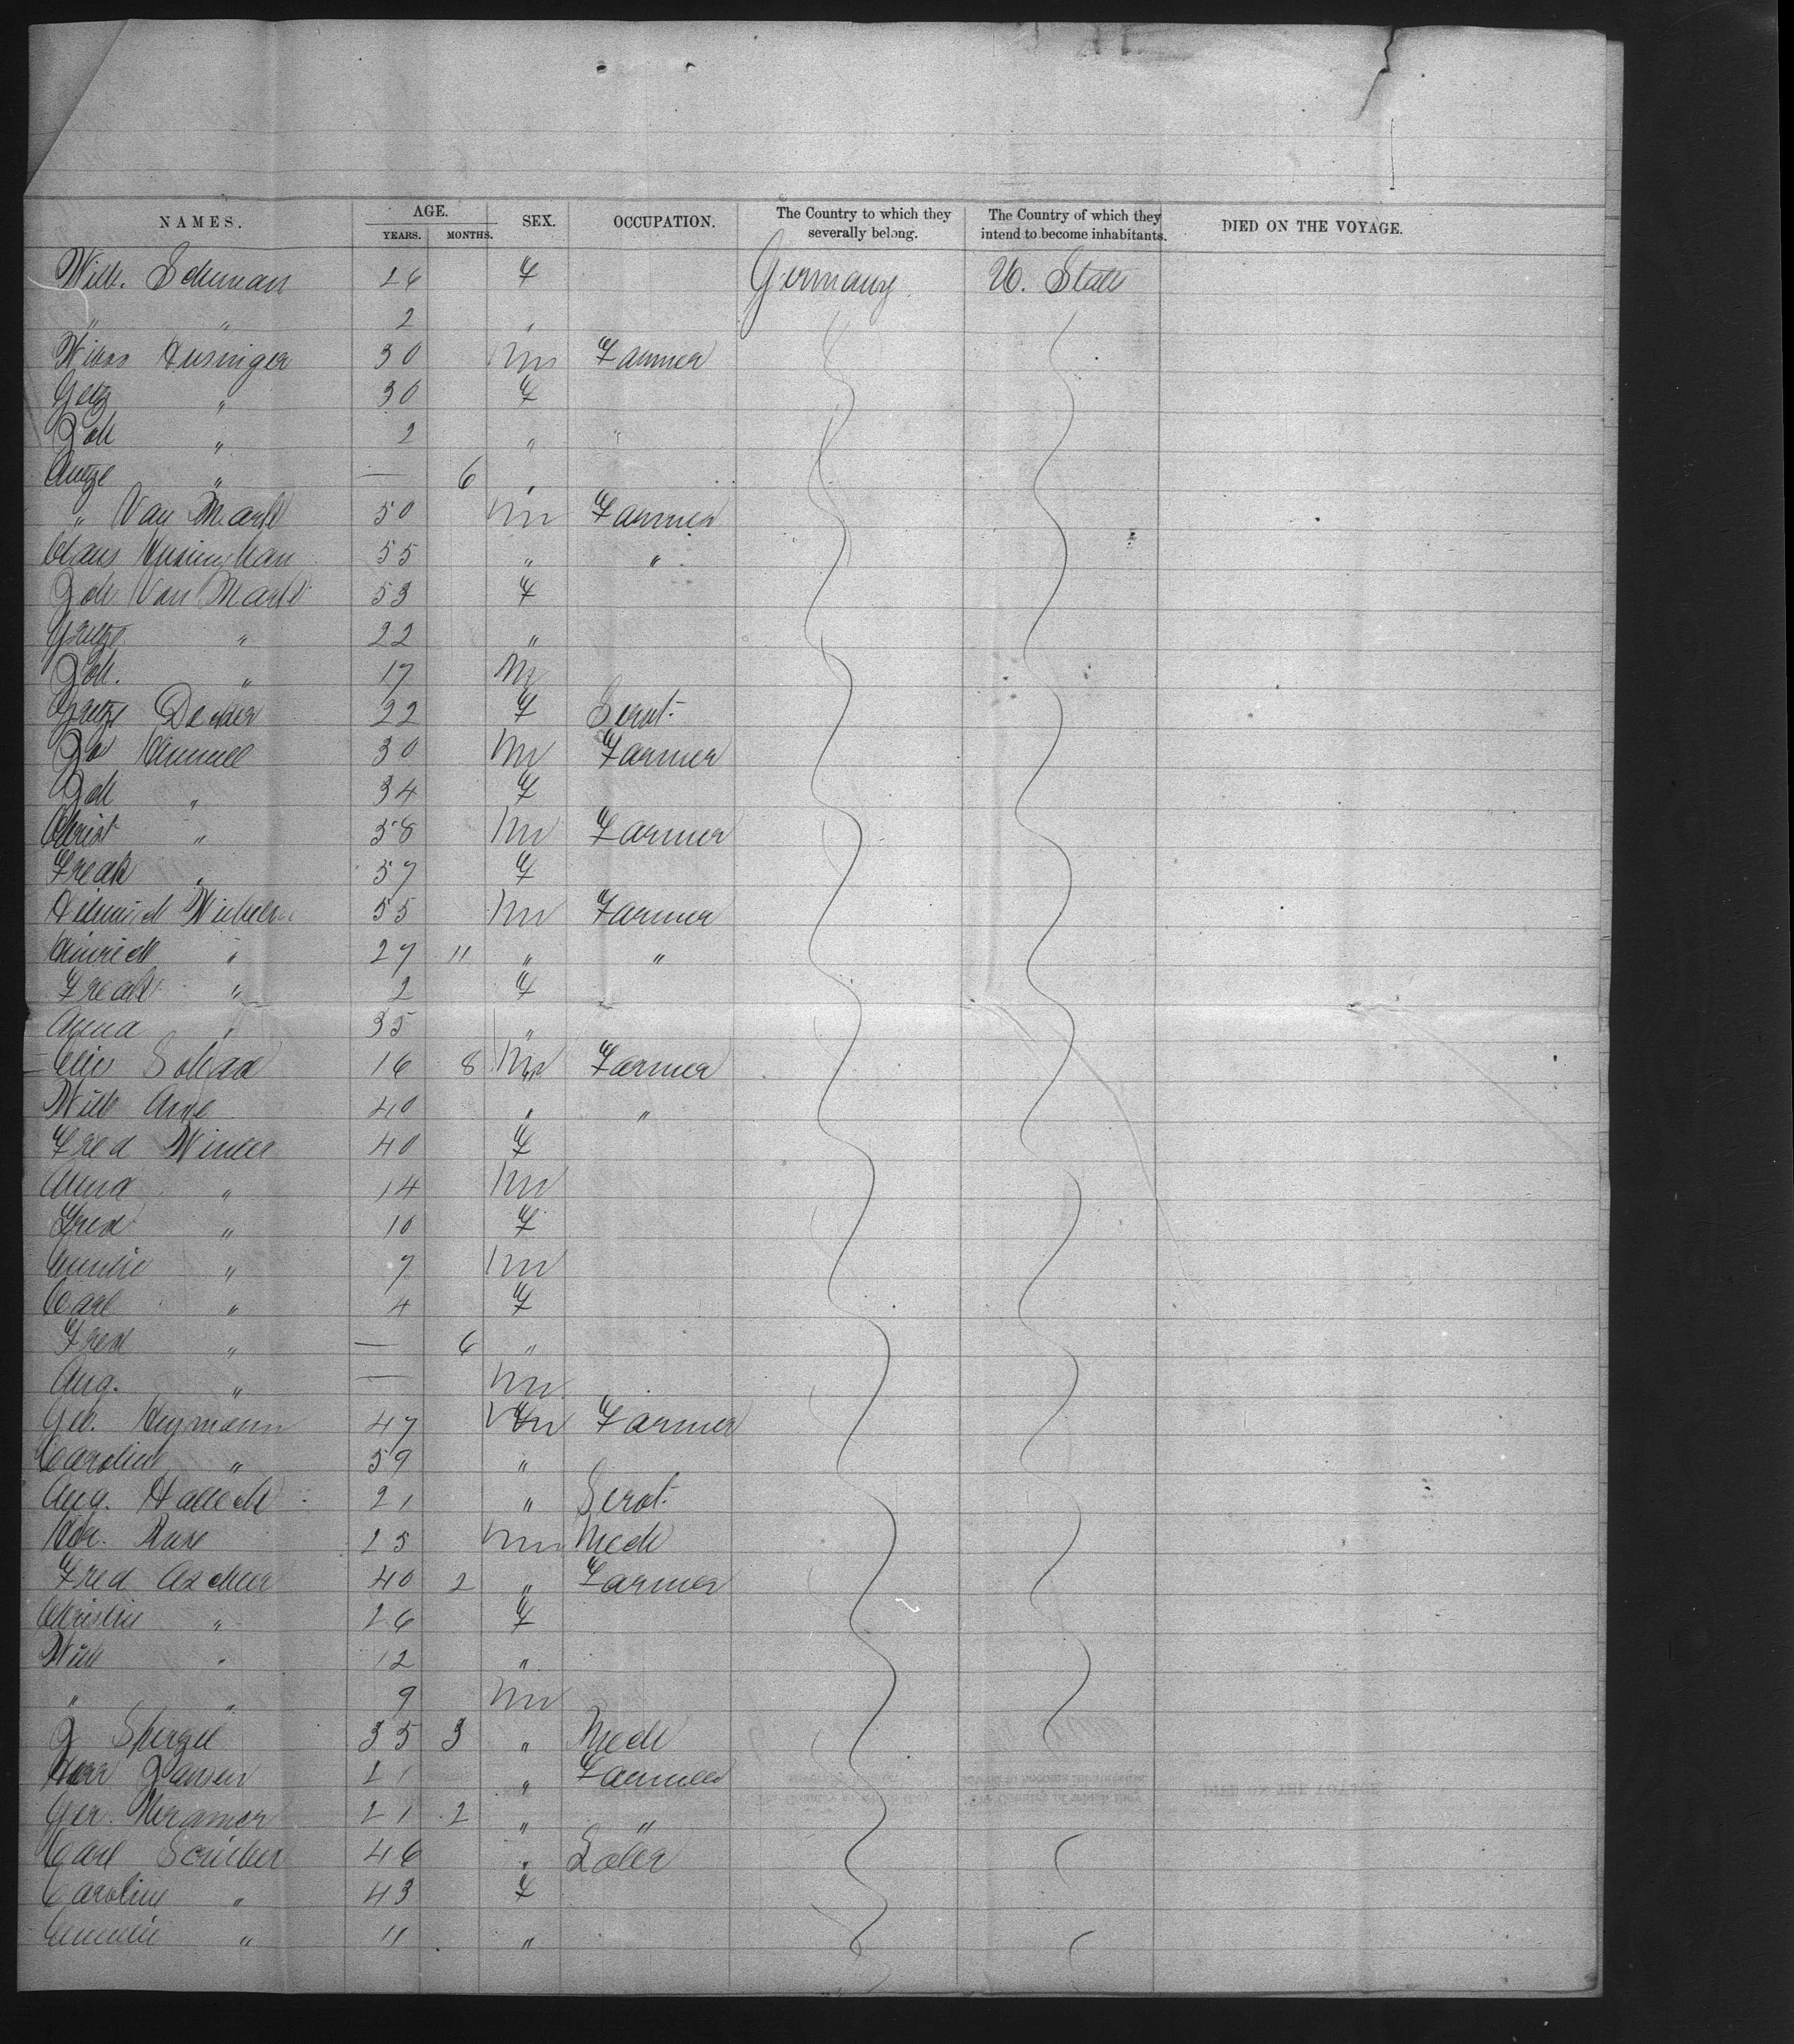 NAMES. AGE. YEARS. MONTHS. SEX. OCCUPATION. The Country to which they severally belong. The Country of which they intend to become inhabitants. DIED ON THE VOYAGE.
Wilh. Schuman 26 F Germany U. States
" " 2 "
30 M Farmer
" 30 F
Joh " 2 " "
Antje " — 6 "
" Van Mark 50 M Farmer
Claus 55 " "
Joh Van Mark 53 F
Gretje " 22 "
Joh. " 17 M
Gretje Decker 22 F Servt.
30 M Farmer
Joh " 34 F
Christ " 58 M Farmer
" 57 F
55 M Farmer
Hinrich " 27 11 " "
" 2 F
Anna " 35 "
16 8 M Farmer
Wilh 40 " "
Fred Winter 40 F
Anna " 14 M
Fred " 10 F
Emilie " 7 M
Carl " 4 F
Fred " — 6 "
Aug. " — M
Geo. Heymann 47 M Farmer
Carolin " 59 "
Aug. 21 " Servt.
25 M Mech
Fred Ascher 40 2 " Farmer
Christin " 26 F
Wilh " 12 "
" " 9 M
J 35 3 " Mech
Jansen 21 " Farmer
Ger. Kramer 21 2 " "
Carl Scrieber 46 " Labr
Caroline " 43 F
Emilie " 11 "